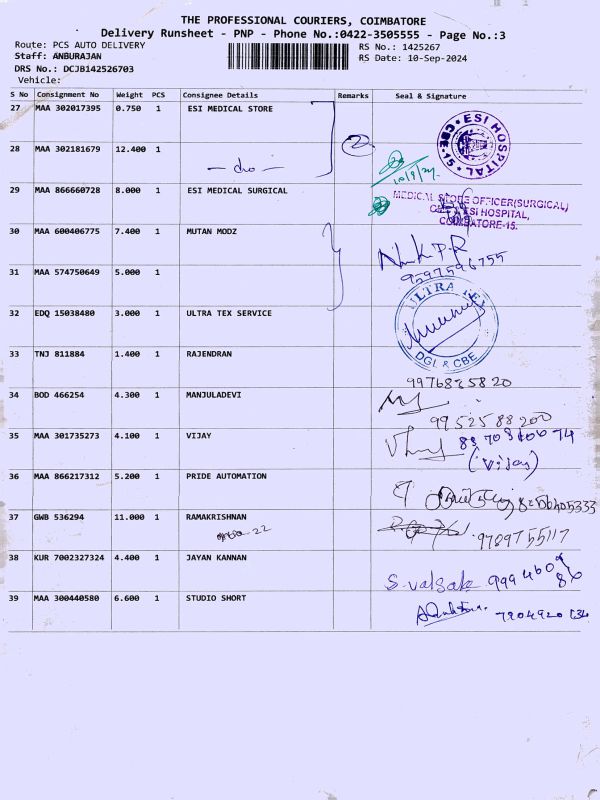 THE PROFESSIONAL COURIERS, COIMBATORE
Delivery Runsheet - PNP - Phone No.:0422-3505555 - Page No.:3
Route: PCS AUTO DELIVERY
RS No.: 1425267
Staff: ANBURAJAN
RS Date: 10-Sep-2024
DRS No.: DCJB142526703
Vehicle:
S No Consignment No Weight PCS Consignee Details Remarks Seal & Signature
27 MAA 302017395 0.750 1 ESI MEDICAL STORE
ESI HOSPITAL
CBE-15
28 MAA 302181679 12.400 1
- do -
2
10/9/24
29 MAA 866660728 8.000 1 ESI MEDICAL SURGICAL
MEDICAL STORE OFFICER(SURGICAL)
ESI HOSPITAL,
COIMBATORE-15.
30 MAA 600406775 7.400 1 MUTAN MODZ
9597596755
31 MAA 574750649 5.000 1
32 EDQ 15038480 3.000 1 ULTRA TEX SERVICE
ULTRA TEX
DGL & CBE
33 TNJ 811884 1.400 1 RAJENDRAN
34 BOD 466254 4.300 1 MANJULADEVI
99525 88 200
35 MAA 301735273 4.100 1 VIJAY
(Vijay)
36 MAA 866217312 5.200 1 PRIDE AUTOMATION
37 GWB 536294 11.000 1 RAMAKRISHNAN
9789755117
38 KUR 7002327324 4.400 1 JAYAN KANNAN
S. Valsala
39 MAA 300440580 6.600 1 STUDIO SHORT